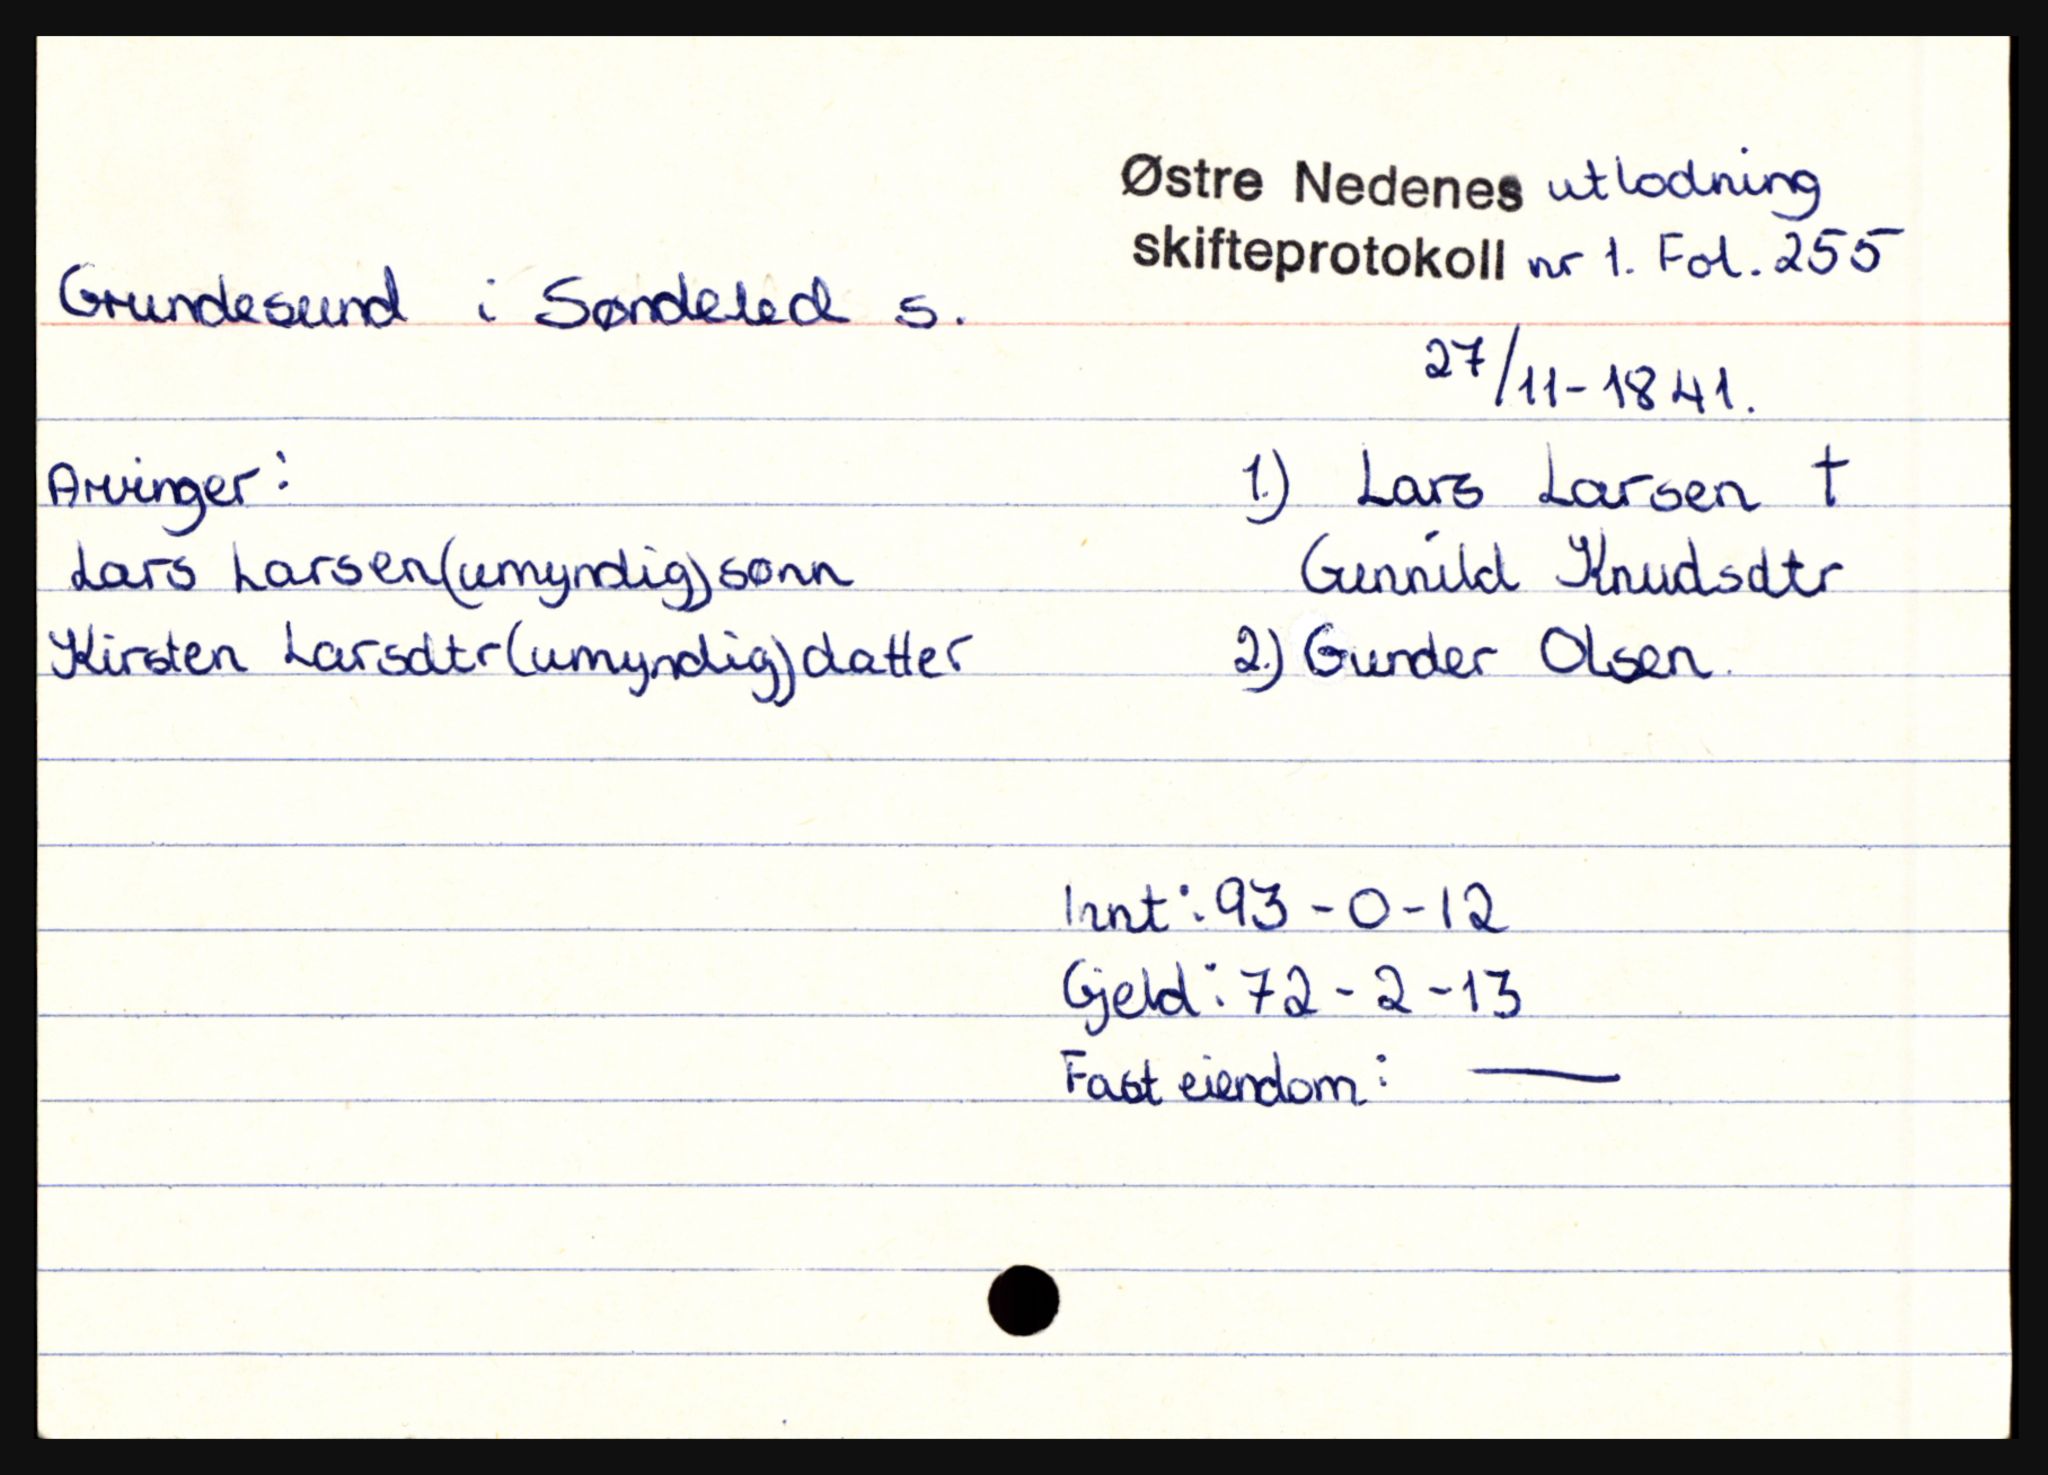 Østre Nedenes utlodning
skifteprotokoll nr 1. Fol. 255
Grundesund i Søndeled s.
27/11-1841.
Arvinger:
1.) Lars Larsen †
Lars Larsen (umyndig) sønn
Gunnild Knudsdtr
Kirsten Larsdtr (umyndig) datter
2.) Gunder Olsen.
Innt: 93-0-12
Gjeld: 72-2-13
Fast eiendom: —